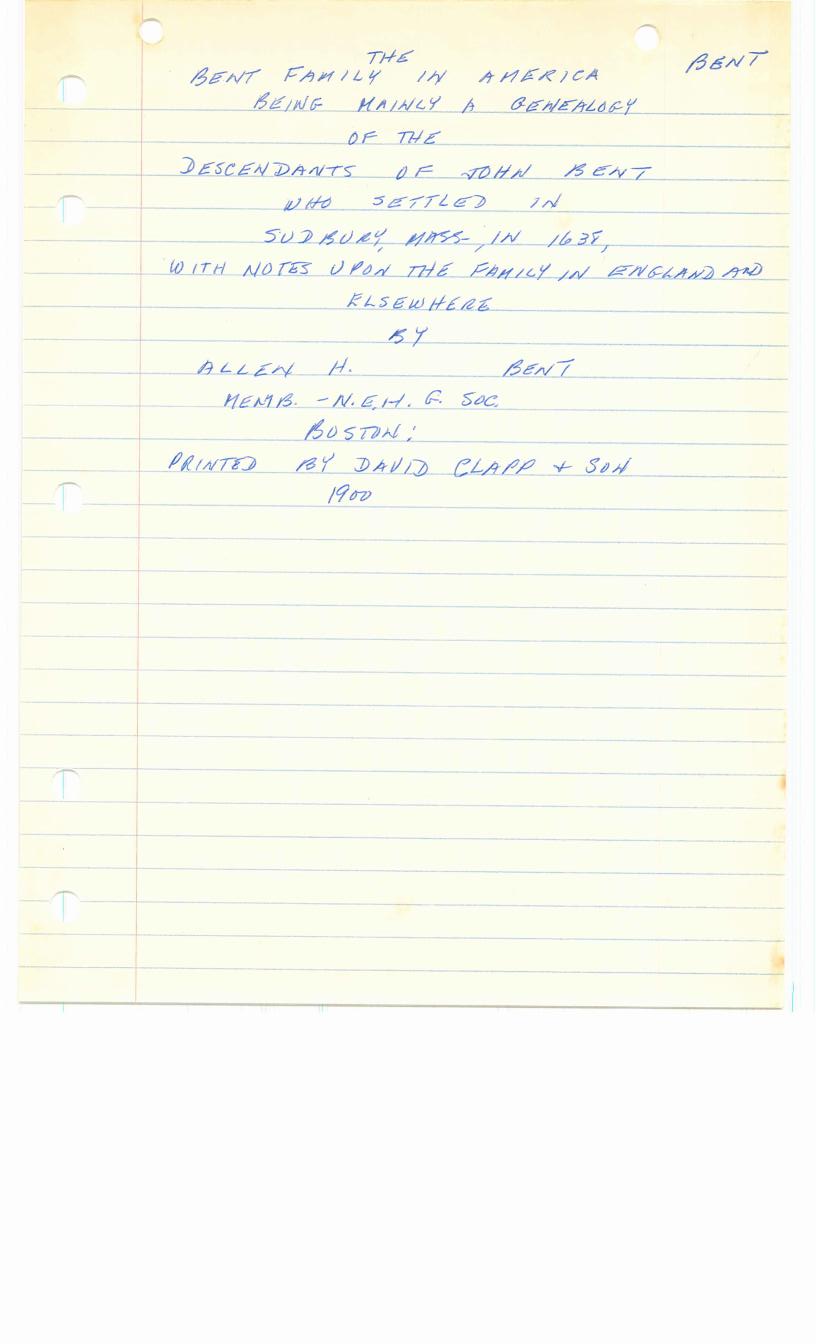 THE
BENT FAMILY IN AMERICA
BENT
BEING MAINLY A GENEALOGY
OF THE
DESCENDANTS OF JOHN BENT
WHO SETTLED IN
SUDBURY, MASS-, IN 1638,
WITH NOTES UPON THE FAMILY IN ENGLAND AND
ELSEWHERE
BY
ALLEN H. BENT
MEMB. - N.E.H. G. SOC.
BOSTON:
PRINTED BY DAVID CLAPP + SON
1900